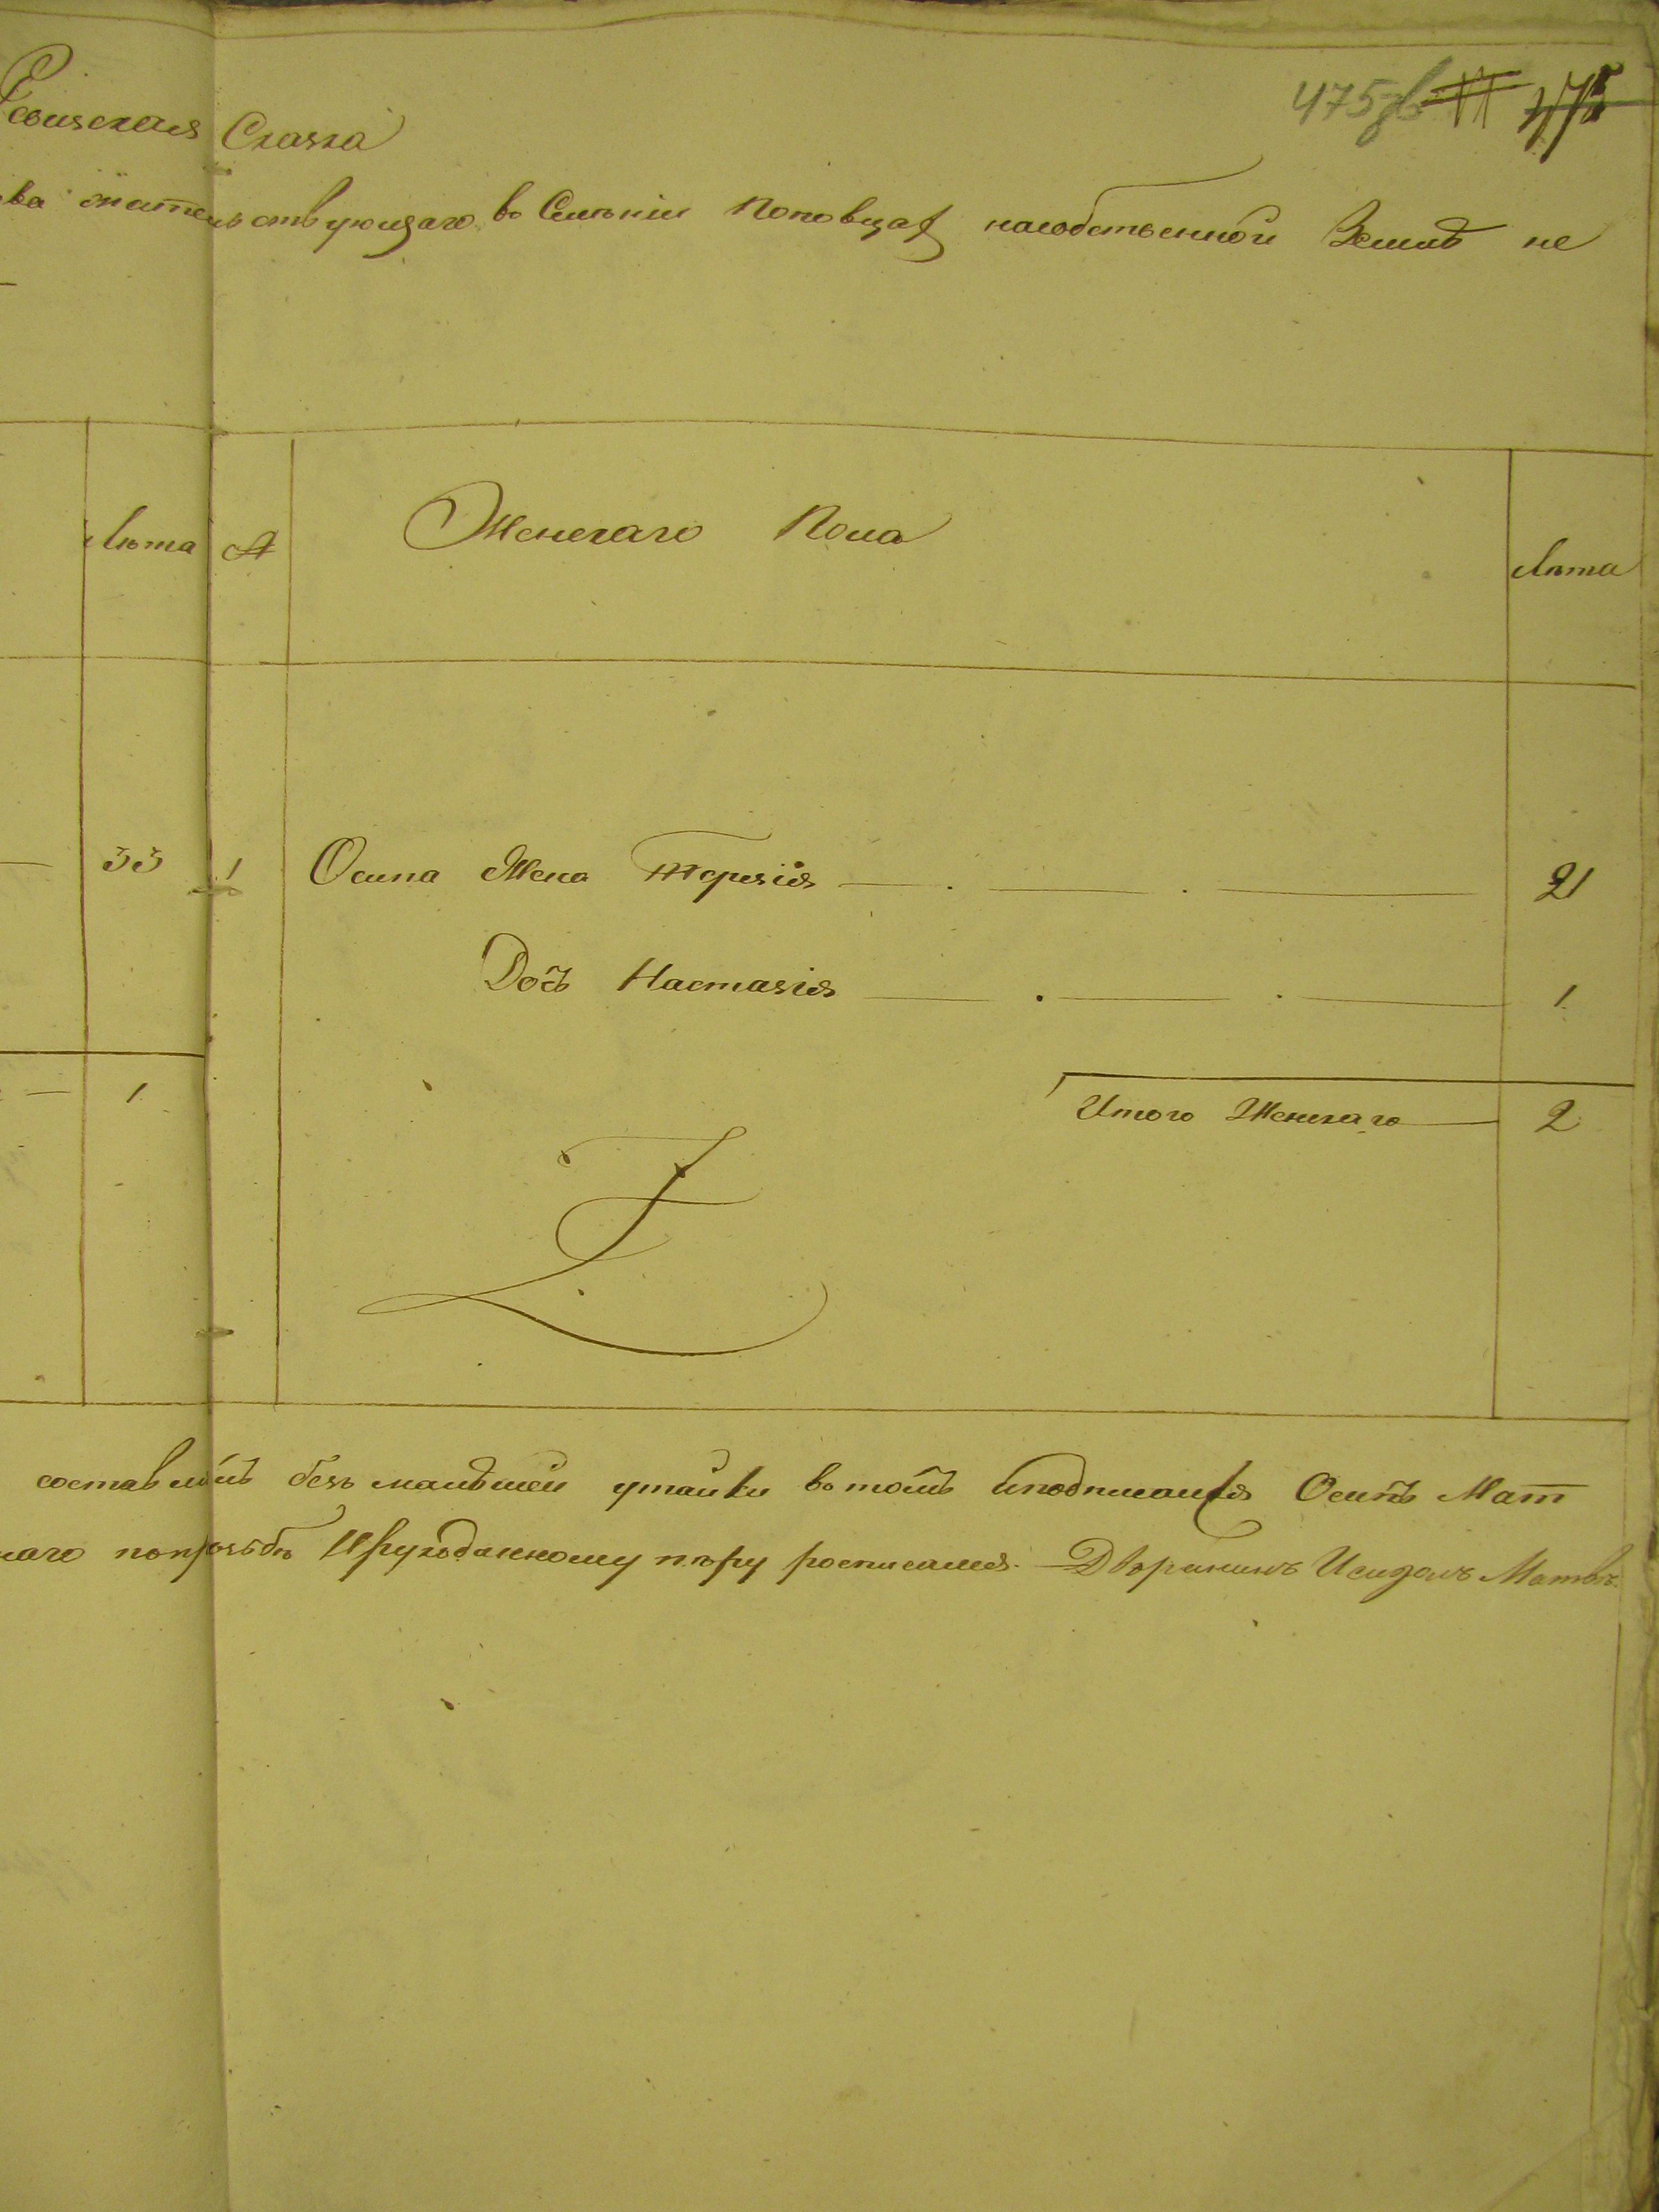 475зв 475
Ревизская Сказка
ва жительствующаго во Селѣніи Поповцах насобственной Землѣ не
Лѣта № Женскаго Пола Лѣта
33 1 Осипа Жена Терезія 21
Дочъ Настазія 1
1 Итого Женскаго 2
составлѣнъ безъ малѣшей утайки во томъ иподписался Осипъ Мат
наго попрозьбѣ Ирукоданному перу росписался. Дворянинъ Исидоръ Матвѣ